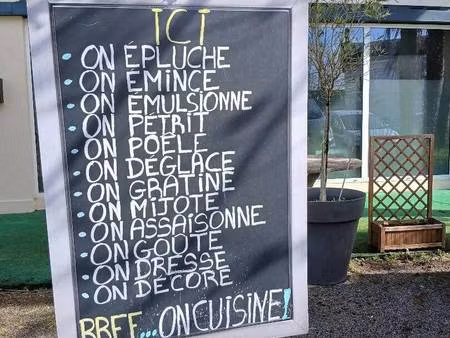 ICI
• ON ÉPLUCHE
• ON ÉMINCE
• ON ÉMULSIONNE
• ON PÉTRIT
• ON POÊLE
• ON DÉGLACE
• ON GRATINE
• ON MIJOTE
• ON ASSAISONNE
• ON GOÛTE
• ON DRESSE
• ON DÉCORE
BREF... ON CUISINE!